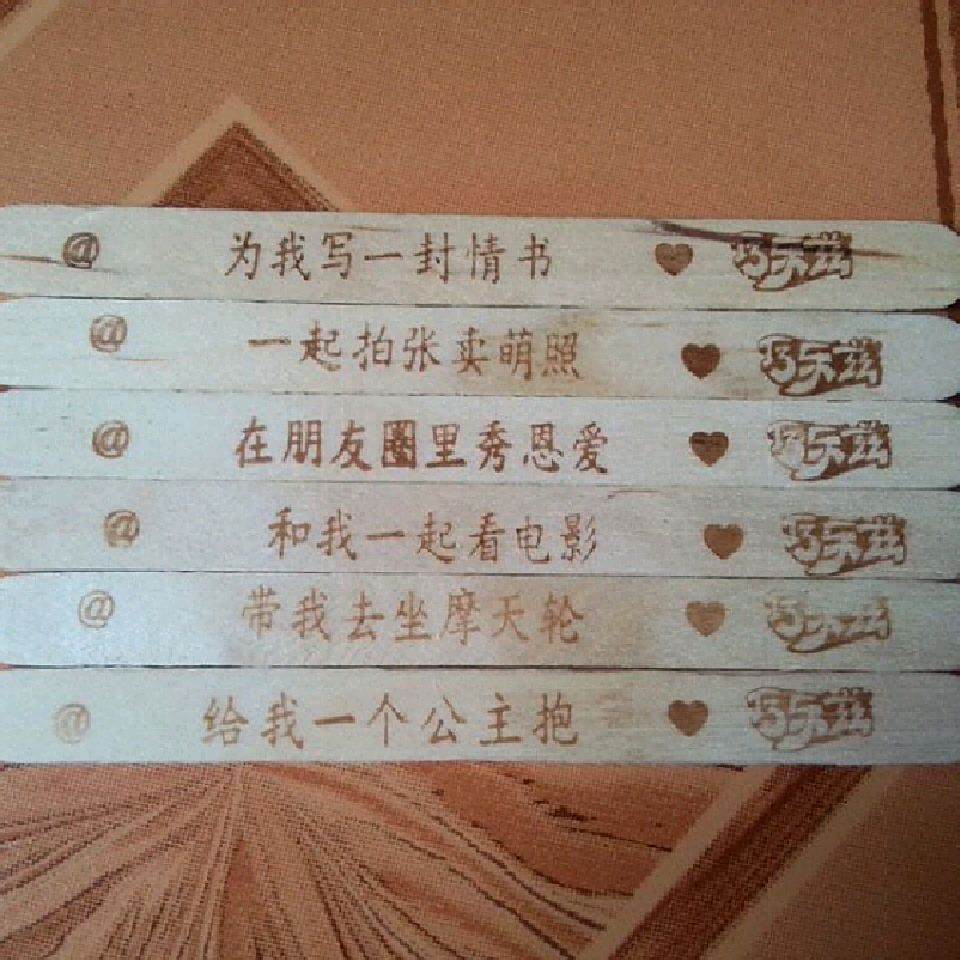 @ 为我写一封情书 巧乐兹
@ 一起拍张卖萌照 巧乐兹
@ 在朋友圈里秀恩爱 巧乐兹
@ 和我一起看电影 巧乐兹
@ 带我去坐摩天轮 巧乐兹
@ 给我一个公主抱 巧乐兹